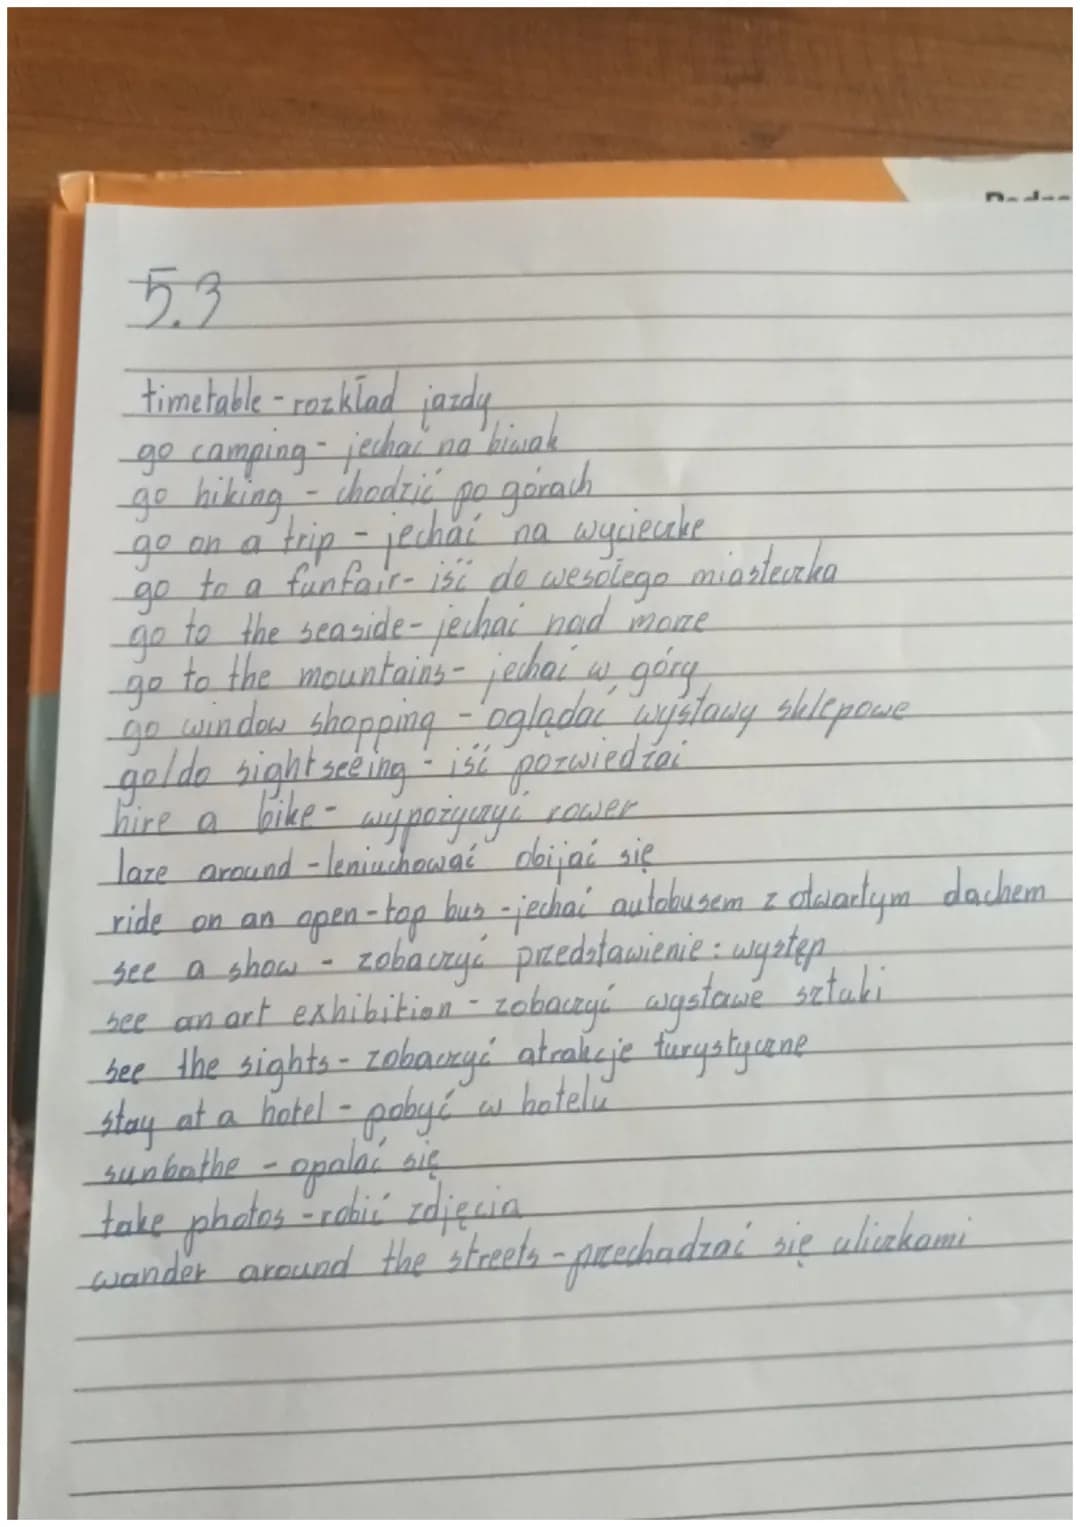 5.3
timetable - rozkład jazdy
go camping - jechać na biwak
go hiking - chodzić po górach
go on a trip - jechać na wycieczke
go to a funfair - iść do wesołego miasteczka
go to the seaside - jechać nad morze
go to the mountains - jechać w góry
go window shopping - oglądać wystawy sklepowe
go/do sightseeing - iść pozwiedzać
hire a bike - wypożyczyć rower
laze around - leniuchować obijać się
ride on an open-top bus - jechać autobusem z otwartym dachem
see a show - zobaczyć przedstawienie : występ
see an art exhibition - zobaczyć wystawe sztuki
see the sights - zobaczyć atrakcje turystyczne
stay at a hotel - pobyć w hotelu
sunbathe - opalać się
take photos - robić zdjęcia
wander around the streets - przechadzać się uliczkami